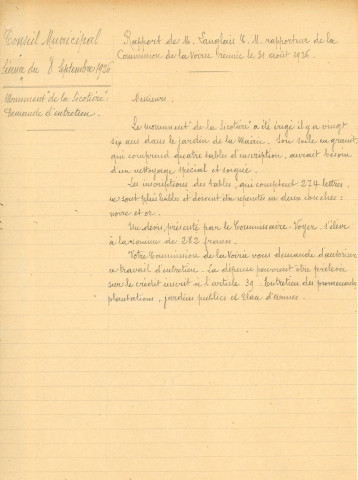 Conseil Municipal
Séance du 8 Septembre 1926
Monument "de la Sicotière"
Demande d'entretien.
Rapport de M. Langlais C. M. rapporteur de la
Commission de la Voirie réunie le 31 août 1926.
Messieurs,
Le monument "de la Sicotière" a été érigé il y a vingt
six ans dans le jardin de la Mairie. Son socle en granit,
qui comprend quatre tables d'inscription, aurait besoin
d'un nettoyage spécial et soigné.
Les inscriptions des tables, qui comptent 274 lettres,
ne sont plus lisibles et devront être repeintes en deux couches:
noire et or.
Un devis, présenté par le Commissaire-Voyer, s'élève
à la somme de 282 francs.
Votre Commission de la Voirie vous demande d'autoriser
ce travail d'entretien. La dépense pourrait être prélevée
sur le crédit inscrit à l'article 39. Entretien des promenades,
plantations, jardins publics et Place d'Armes.